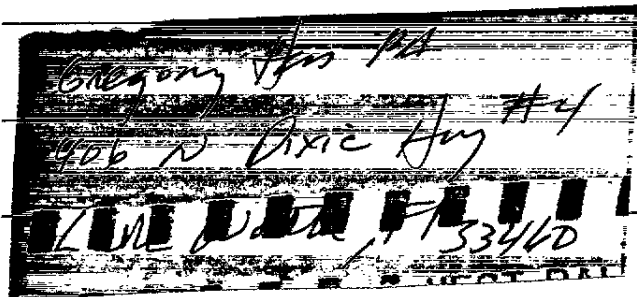 Gregory PA
406 N Dixie Hwy #4
Lake Worth, Fl 33460